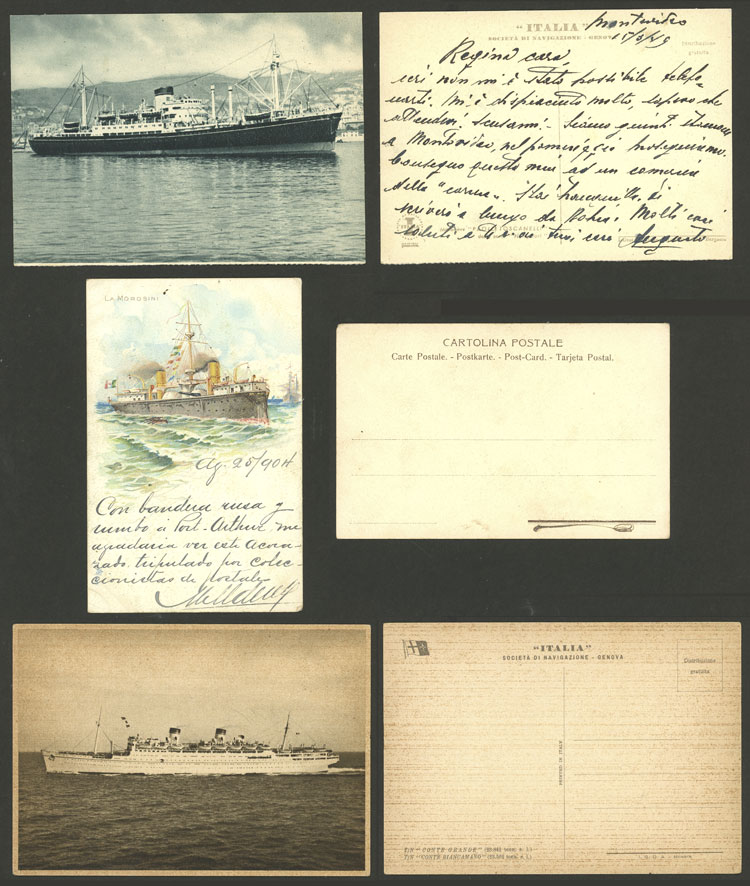 "ITALIA"
SOCIETÀ DI NAVIGAZIONE - GENOVA
Distribuzione
gratuita
Montevideo
Regina cara,
ieri non mi è stato possibile telefo-
narti. Mi è dispiaciuto molto, sapevo che
attendevi scusami. Siamo giunti stamane
a Montevideo, nel pomeriggio proseguiremo.
Consegno questa mia ad un cameriere
della
Stai tranquilla, ti
scriverò a lungo da Bahia. Molti cari
saluti a te e ai tuoi, cari Augusto
"PAOLO TOSCANELLI"
LA MOROSINI
Ag. 25/904
Con bandera rusa y
rumbo á Port-Arthur me
agradaria ver este acora-
zado tripulado por colec-
cionistas de postales
CARTOLINA POSTALE
Carte Postale. - Postkarte. - Post-Card. - Tarjeta Postal.
"ITALIA"
SOCIETÀ DI NAVIGAZIONE - GENOVA
Distribuzione
gratuita
PRINTED IN ITALY
T/N "CONTE GRANDE"
T/N "CONTE BIANCAMANO"